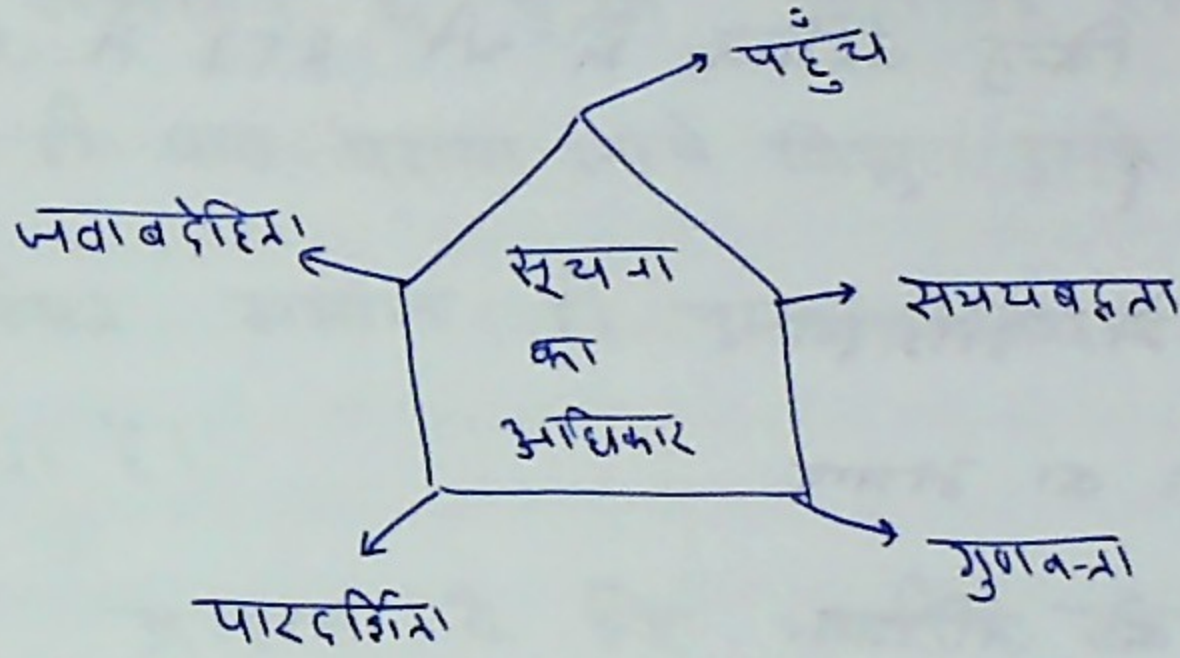 पहुँच
जवाबदेहिता
सूचना
का
अधिकार
समयबद्धता
गुणवत्ता
पारदर्शिता